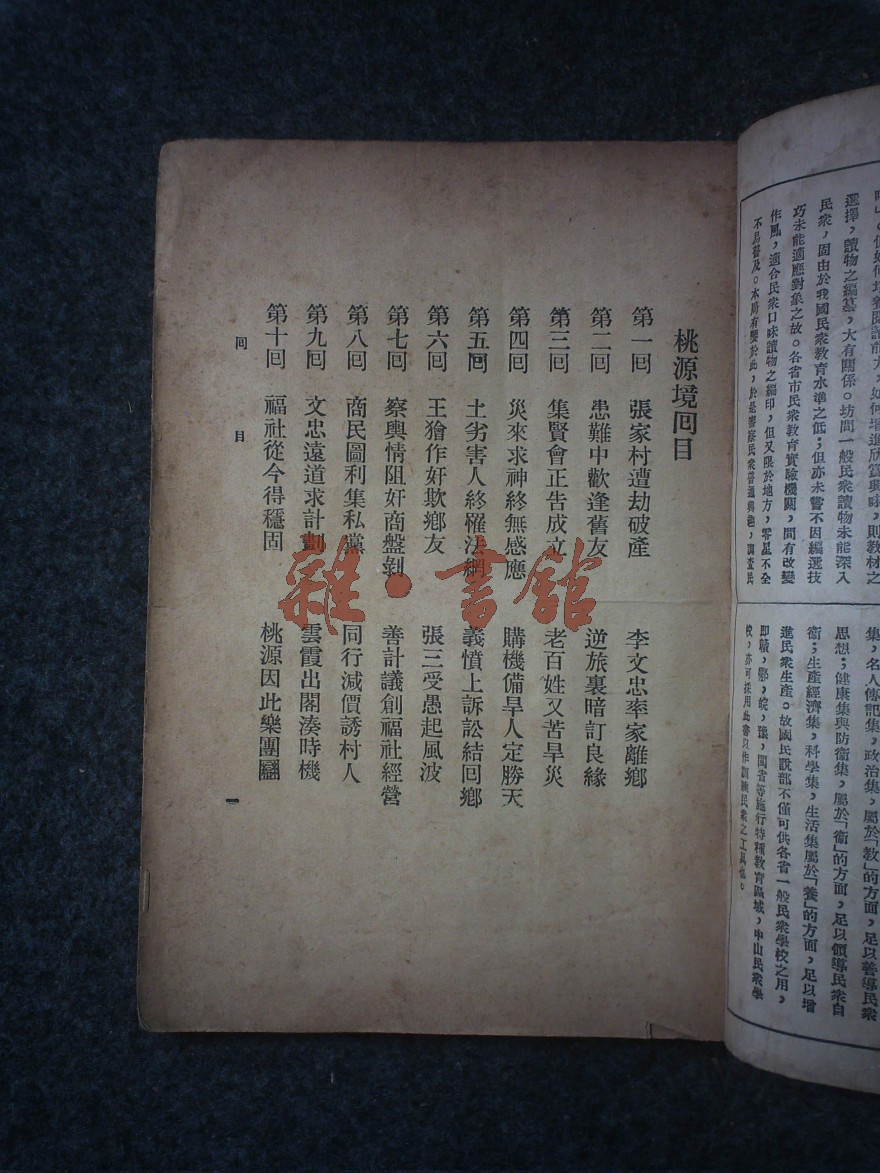 味」。但如何培養閱讀能力，如何增進欣賞興味，則教材之
選擇，讀物之編纂，大有關係。坊間一般民衆讀物未能深入
民衆，固由於我國民衆教育水準之低；但亦未嘗不因編選技
巧未能適應對象之故。各省市民衆教育實驗機關，間有改變
作風，適合民衆口味讀物之編印，但又限於地方，零星不全
不易普及。本局有鑒於此，於是審察民衆普通興趣，調查民
集，名人傳記集，政治集，屬於「教」的方面，足以善導民衆
思想；健康集與防衞集，屬於「衞」的方面，足以領導民衆自
衞；生產經濟集，科學集，生活集屬於「養」的方面，足以增
進民衆生產。故國民說部不僅可供各省一般民衆學校之用，
即贛，鄂，皖，豫，閩省等施行特種教育區域，中山民衆學
校，亦可採用此書以作訓練民衆之工具也。
桃源境回目
第一回　張家村遭劫破產　李文忠率家離鄉
第二回　患難中歡逢舊友　逆旅裏暗訂良緣
第三回　集賢會正告成立　老百姓又苦旱災
第四回　災來求神終無感應　購機備旱人定勝天
第五回　土劣害人終罹法網　義憤上訴訟結回鄉
第六回　王獪作奸欺鄉友　張三受愚起風波
第七回　察輿情阻奸商盤剝　善計議創福社經營
第八回　商民圖利集私黨　同行減價誘村人
第九回　文忠遠道求計劃　雲霞出閣湊時機
第十回　福社從今得穩固　桃源因此樂團圞
回目
一
雜·書館